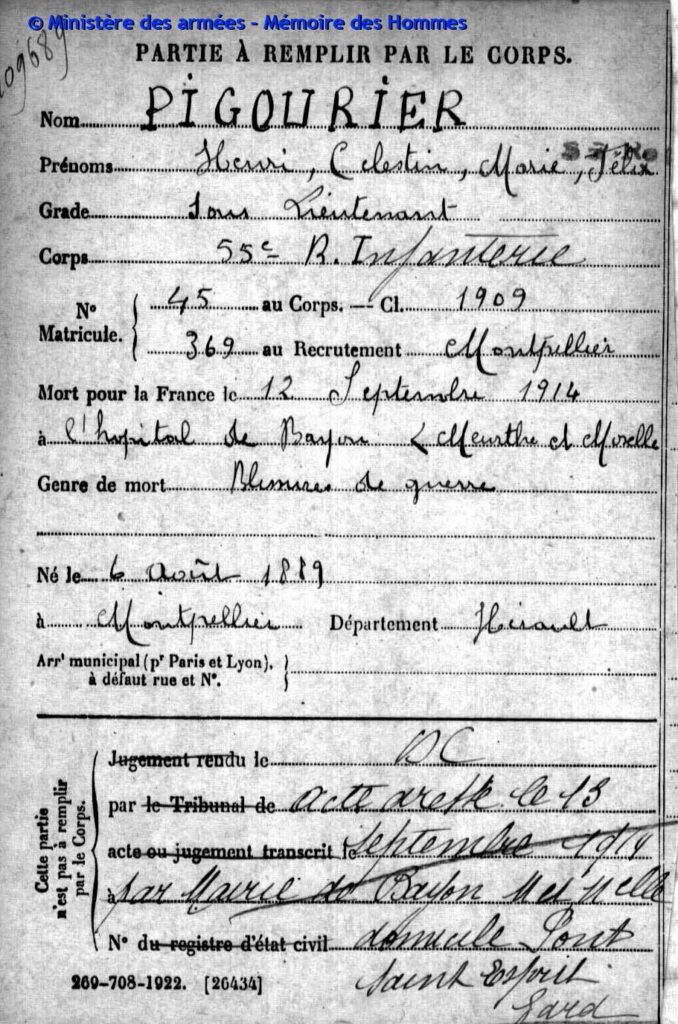 © Ministère des armées - Mémoire des Hommes
209689
PARTIE À REMPLIR PAR LE CORPS.
Nom PIGOURIER
Prénoms Henri, Celestin, Marie, Félix
Grade Sous Lieutenant
Corps 55e R. Infanterie
N° Matricule. { 45 au Corps. — Cl. 1909
369 au Recrutement Montpellier
Mort pour la France le 12 Septembre 1914
à l'hopital de Bayon (Meurthe et Moselle
Genre de mort Blessures de guerre
Né le 6 Août 1889
à Montpellier Département Hérault
Arrt municipal (pr Paris et Lyon),
à défaut rue et N°. }
Cette partie n'est pas à remplir par le Corps. {
Jugement rendu le DC
par le Tribunal de acte dressé le 13
acte ou jugement transcrit le Septembre 1914
à par Mairie de Bayon M et Melle
N° du registre d'état civil domicile Pont
Saint Esprit
Gard
269-708-1922. [26434]